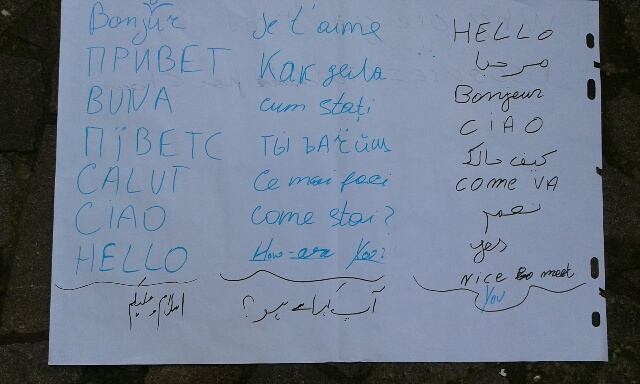 Bonjŭr
ПРИВЕТ
BUNA
ПЇВЕТС
CALUT
CIAO
HELLO
je t'aime
Как дела
cum stați
ce mai faci
come stai?
How are You?
HELLO
مرحبا
Bonjour
CIAO
كيف حالك
COME VA
نعم
yes
NICE to meet
You